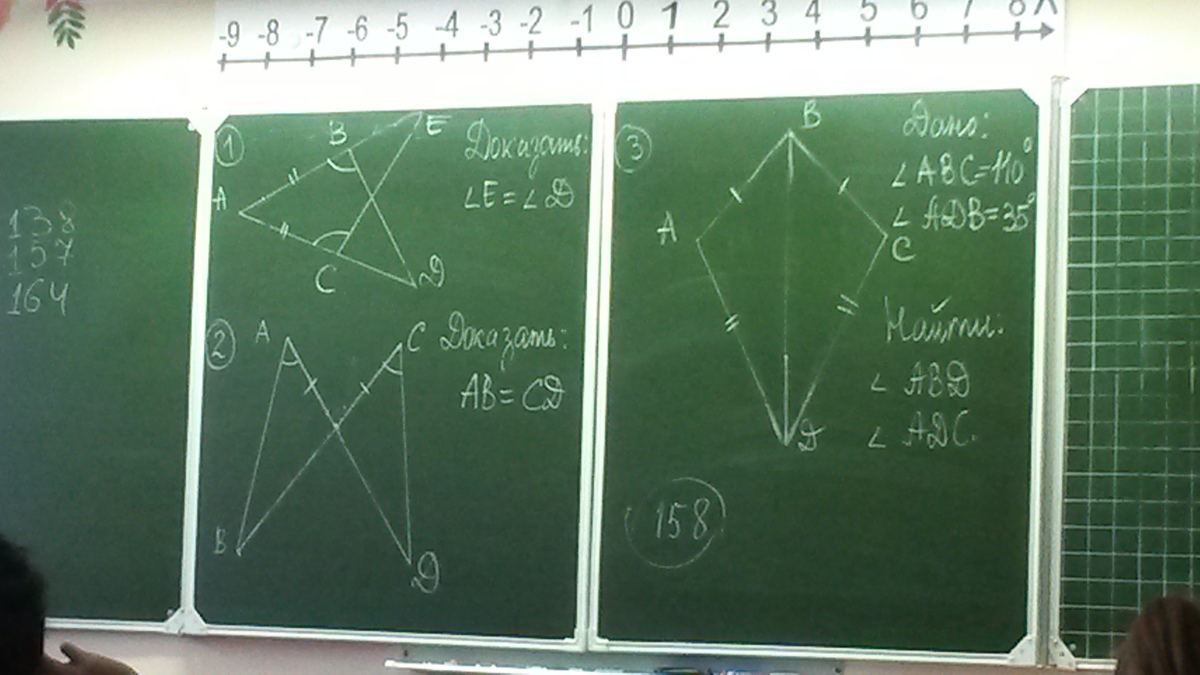 -9 -8 -7 -6 -5 -4 -3 -2 -1 0 1 2 3 4 5 6 7 8 X
138
157
164
1
A
B
E
C
D
Доказать:
∠E = ∠D
2
A
C
B
D
Доказать:
AB = CD
3
B
A
C
D
Дано:
∠ ABC = 110°
∠ ADB = 35°
Найти:
∠ ABD
∠ ADC.
158